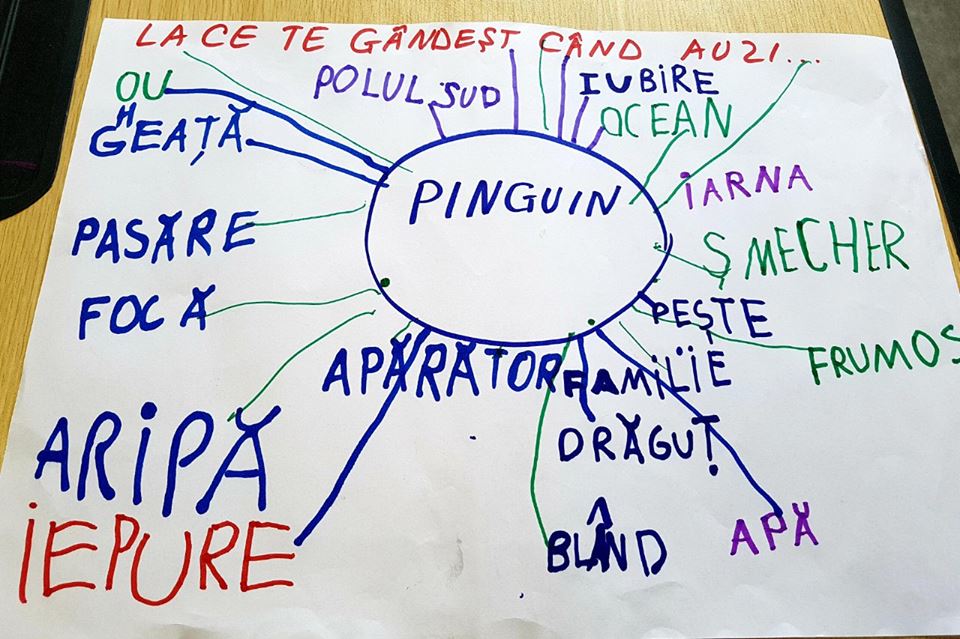 LA CE TE GÂNDEȘT CÂND AUZI...
OU
POLUL SUD
IUBIRE
GHEAȚĂ
OCEAN
PINGUIN
IARNA
PASĂRE
ȘMECHER
FOCĂ
PEȘTE
APĂRĂTOR
FAMILIE
FRUMOS
ARIPĂ
DRĂGUȚ
IEPURE
BLÂND
APĂ